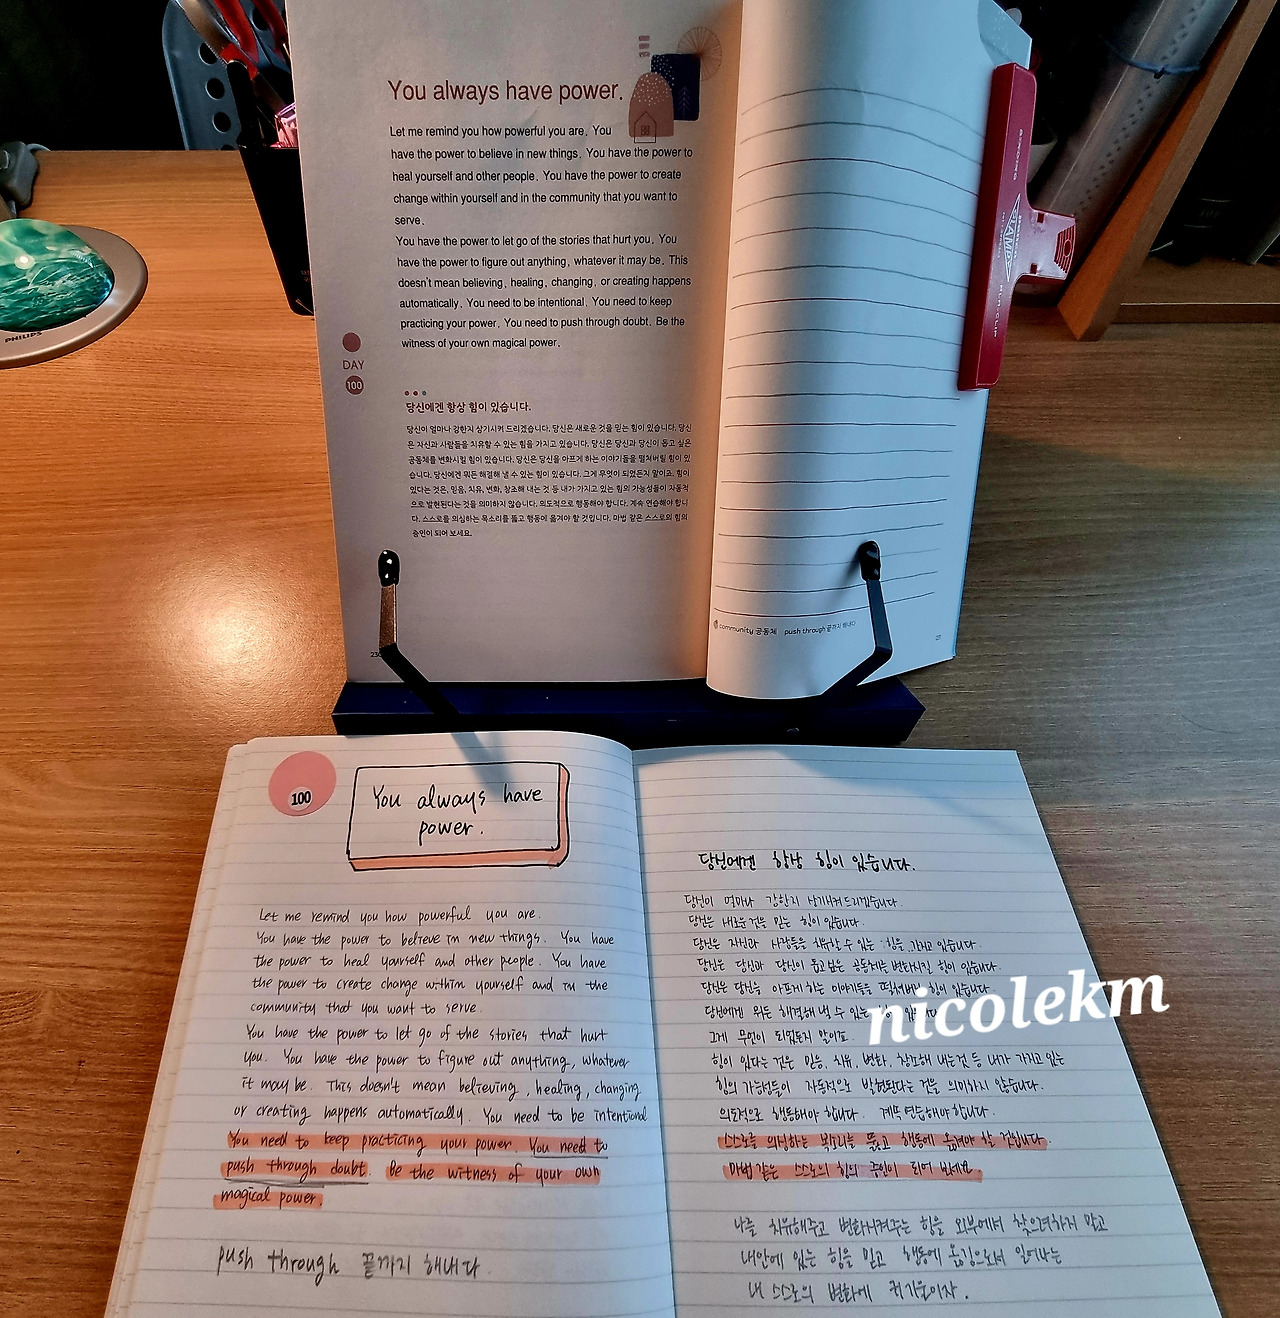 You always have power.
Let me remind you how powerful you are. You
have the power to believe in new things. You have the power to
heal yourself and other people. You have the power to create
change within yourself and in the community that you want to
serve.
You have the power to let go of the stories that hurt you. You
have the power to figure out anything, whatever it may be. This
doesn't mean believing, healing, changing, or creating happens
automatically. You need to be intentional. You need to keep
practicing your power. You need to push through doubt. Be the
witness of your own magical power.
DAY
100
당신에겐 항상 힘이 있습니다.
당신이 얼마나 강한지 상기시켜 드리겠습니다. 당신은 새로운 것을 믿는 힘이 있습니다. 당신
은 자신과 사람들을 치유할 수 있는 힘을 가지고 있습니다. 당신은 당신과 당신이 돕고 싶은
공동체를 변화시킬 힘이 있습니다. 당신은 당신을 아프게 하는 이야기들을 떨쳐버릴 힘이 있
습니다. 당신에겐 뭐든 해결해 낼 수 있는 힘이 있습니다. 그게 무엇이 되었든지 말이죠. 힘이
있다는 것은, 믿음, 치유, 변화, 창조해 내는 것 등 내가 가지고 있는 힘의 가능성들이 자동적
으로 발현된다는 것을 의미하지 않습니다. 의도적으로 행동해야 합니다. 계속 연습해야 합니
다. 스스로를 의심하는 목소리를 뚫고 행동에 옮겨야 할 것입니다. 마법 같은 스스로의 힘의
증인이 되어 보세요.
community 공동체 push through 끝까지 해내다
PHILIPS
100
You always have
power.
Let me remind you how powerful you are.
You have the power to believe in new things. You have
the power to heal yourself and other people. You have
the power to create change within yourself and in the
community that you want to serve.
You have the power to let go of the stories that hurt
you. You have the power to figure out anything, whatever
it may be. This doesn't mean believing, healing, changing
or creating happens automatically. You need to be intentional
You need to keep practicing your power. You need to
push through doubt. Be the witness of your own
magical power.
push through 끝까지 해내다.
당신에겐 항상 힘이 있습니다.
당신이 얼마나 강한지 상기시켜드리겠습니다.
당신은 새로운 것을 믿는 힘이 있습니다.
당신은 자신과 사람들을 치유할 수 있는 힘을 가지고 있습니다.
당신은 당신과 당신이 돕고싶은 공동체를 변화시킬 힘이 있습니다.
당신은 당신을 아프게 하는 이야기들을 떨쳐버릴 힘이 있습니다.
당신에겐 뭐든 해결해 낼 수 있는
그게 무엇이 되었든지 말이죠.
힘이 있다는 것은 믿음, 치유, 변화, 창조해 내는것 등 내가 가지고 있는
힘의 가능성들이 자동적으로 발현된다는 것을 의미하지 않습니다.
의도적으로 행동해야 합니다. 계속 연습해야합니다.
스스로를 의심하는 목소리를 뚫고 행동에 옮겨야 할 것입니다.
마법같은 스스로의 힘의 증인이 되어 보세요
나를 치유해주고 변화시켜주는 힘을 외부에서 찾으려하지 말고
내안에 있는 힘을 믿고 행동에 옮김으로서 일어나는
내 스스로의 변화에 귀기울이자.
nicolekm